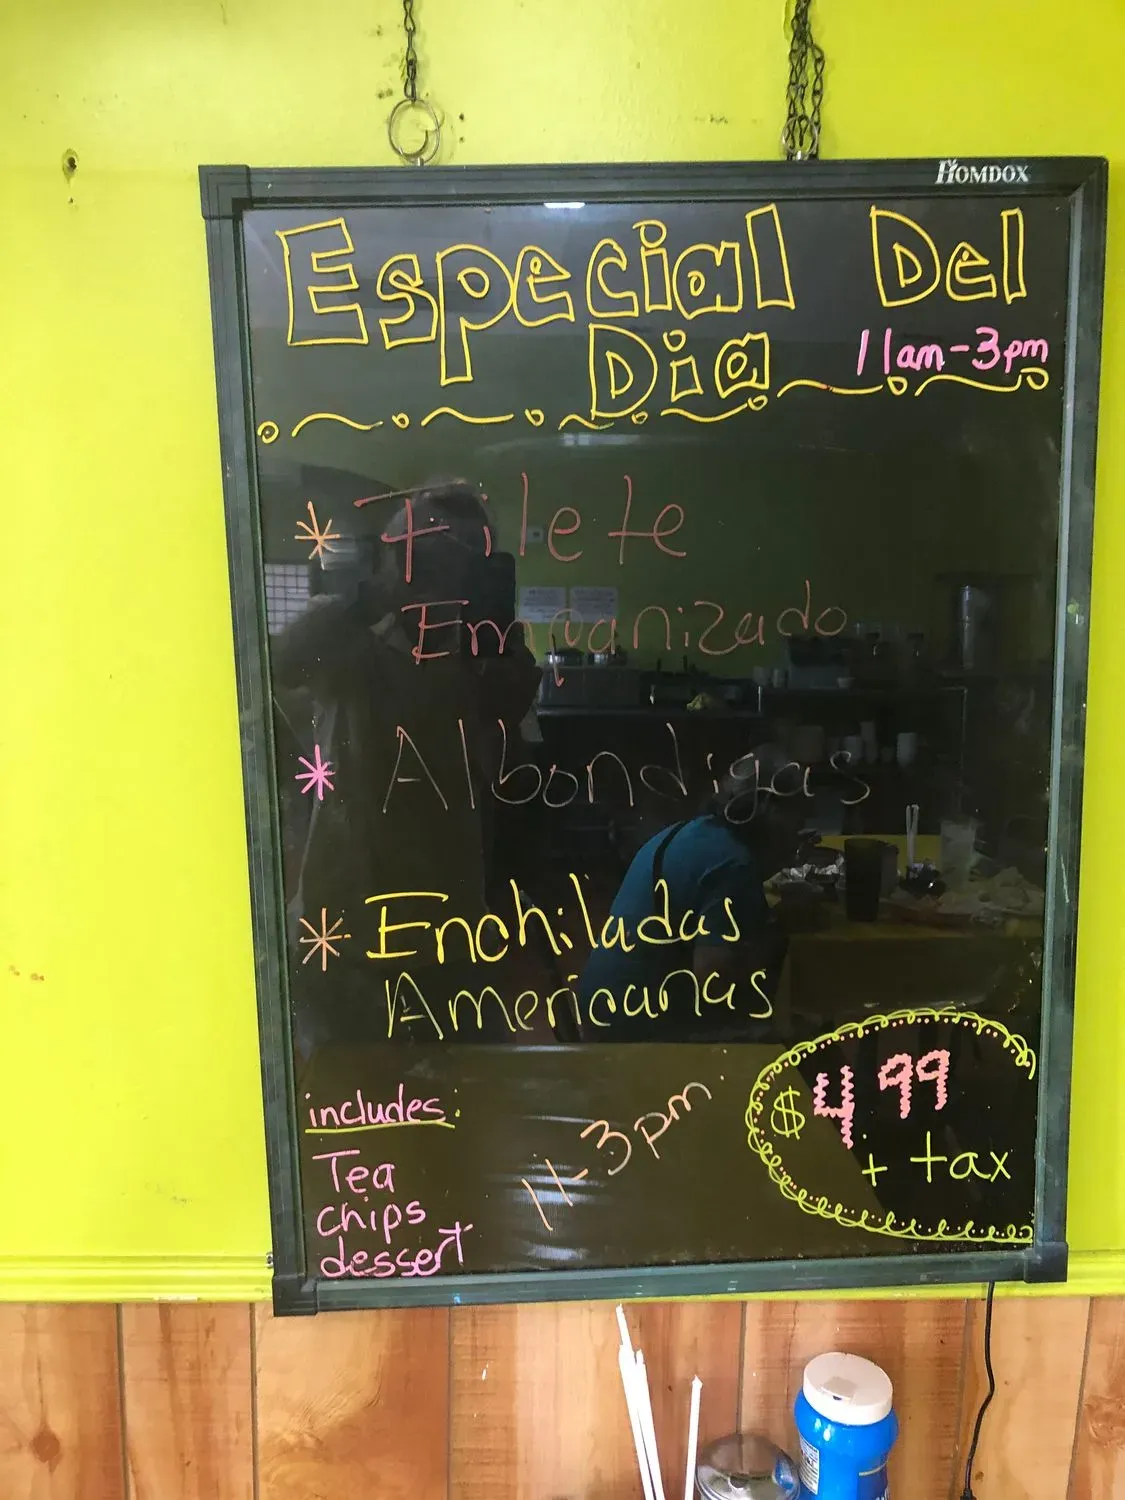 HOMDOX
Especial Del
Dia
11am-3pm
* Filete
Empanizado
* Albondigas
* Enchiladas
Americanas
includes:
Tea
chips
dessert
11-3pm
$4.99
+ tax